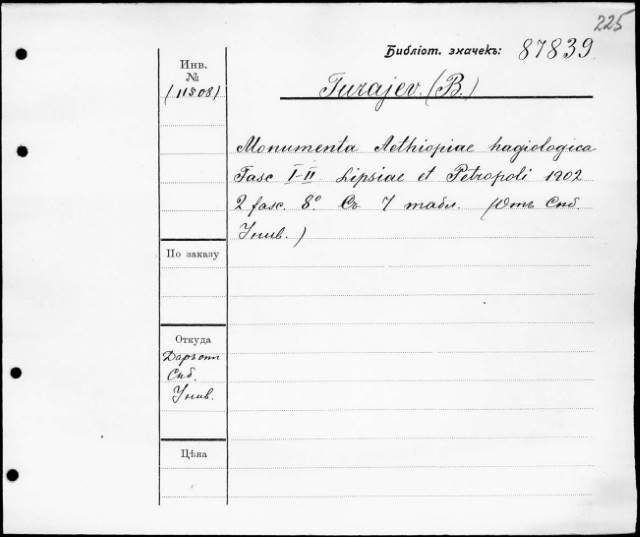 225
Библіот. значекъ: 87839
Инв.
№
(11508)
Turajev. (B.)
Monumenta Aethiopiae hagiologica
Fasc I-II Lipsiae et Petropoli 1902
2 fasc. 8° Съ 7 табл. (Отъ Спб.
Унив.)
По заказу
Откуда
Даръ отъ
Спб.
Унив.
Цѣна